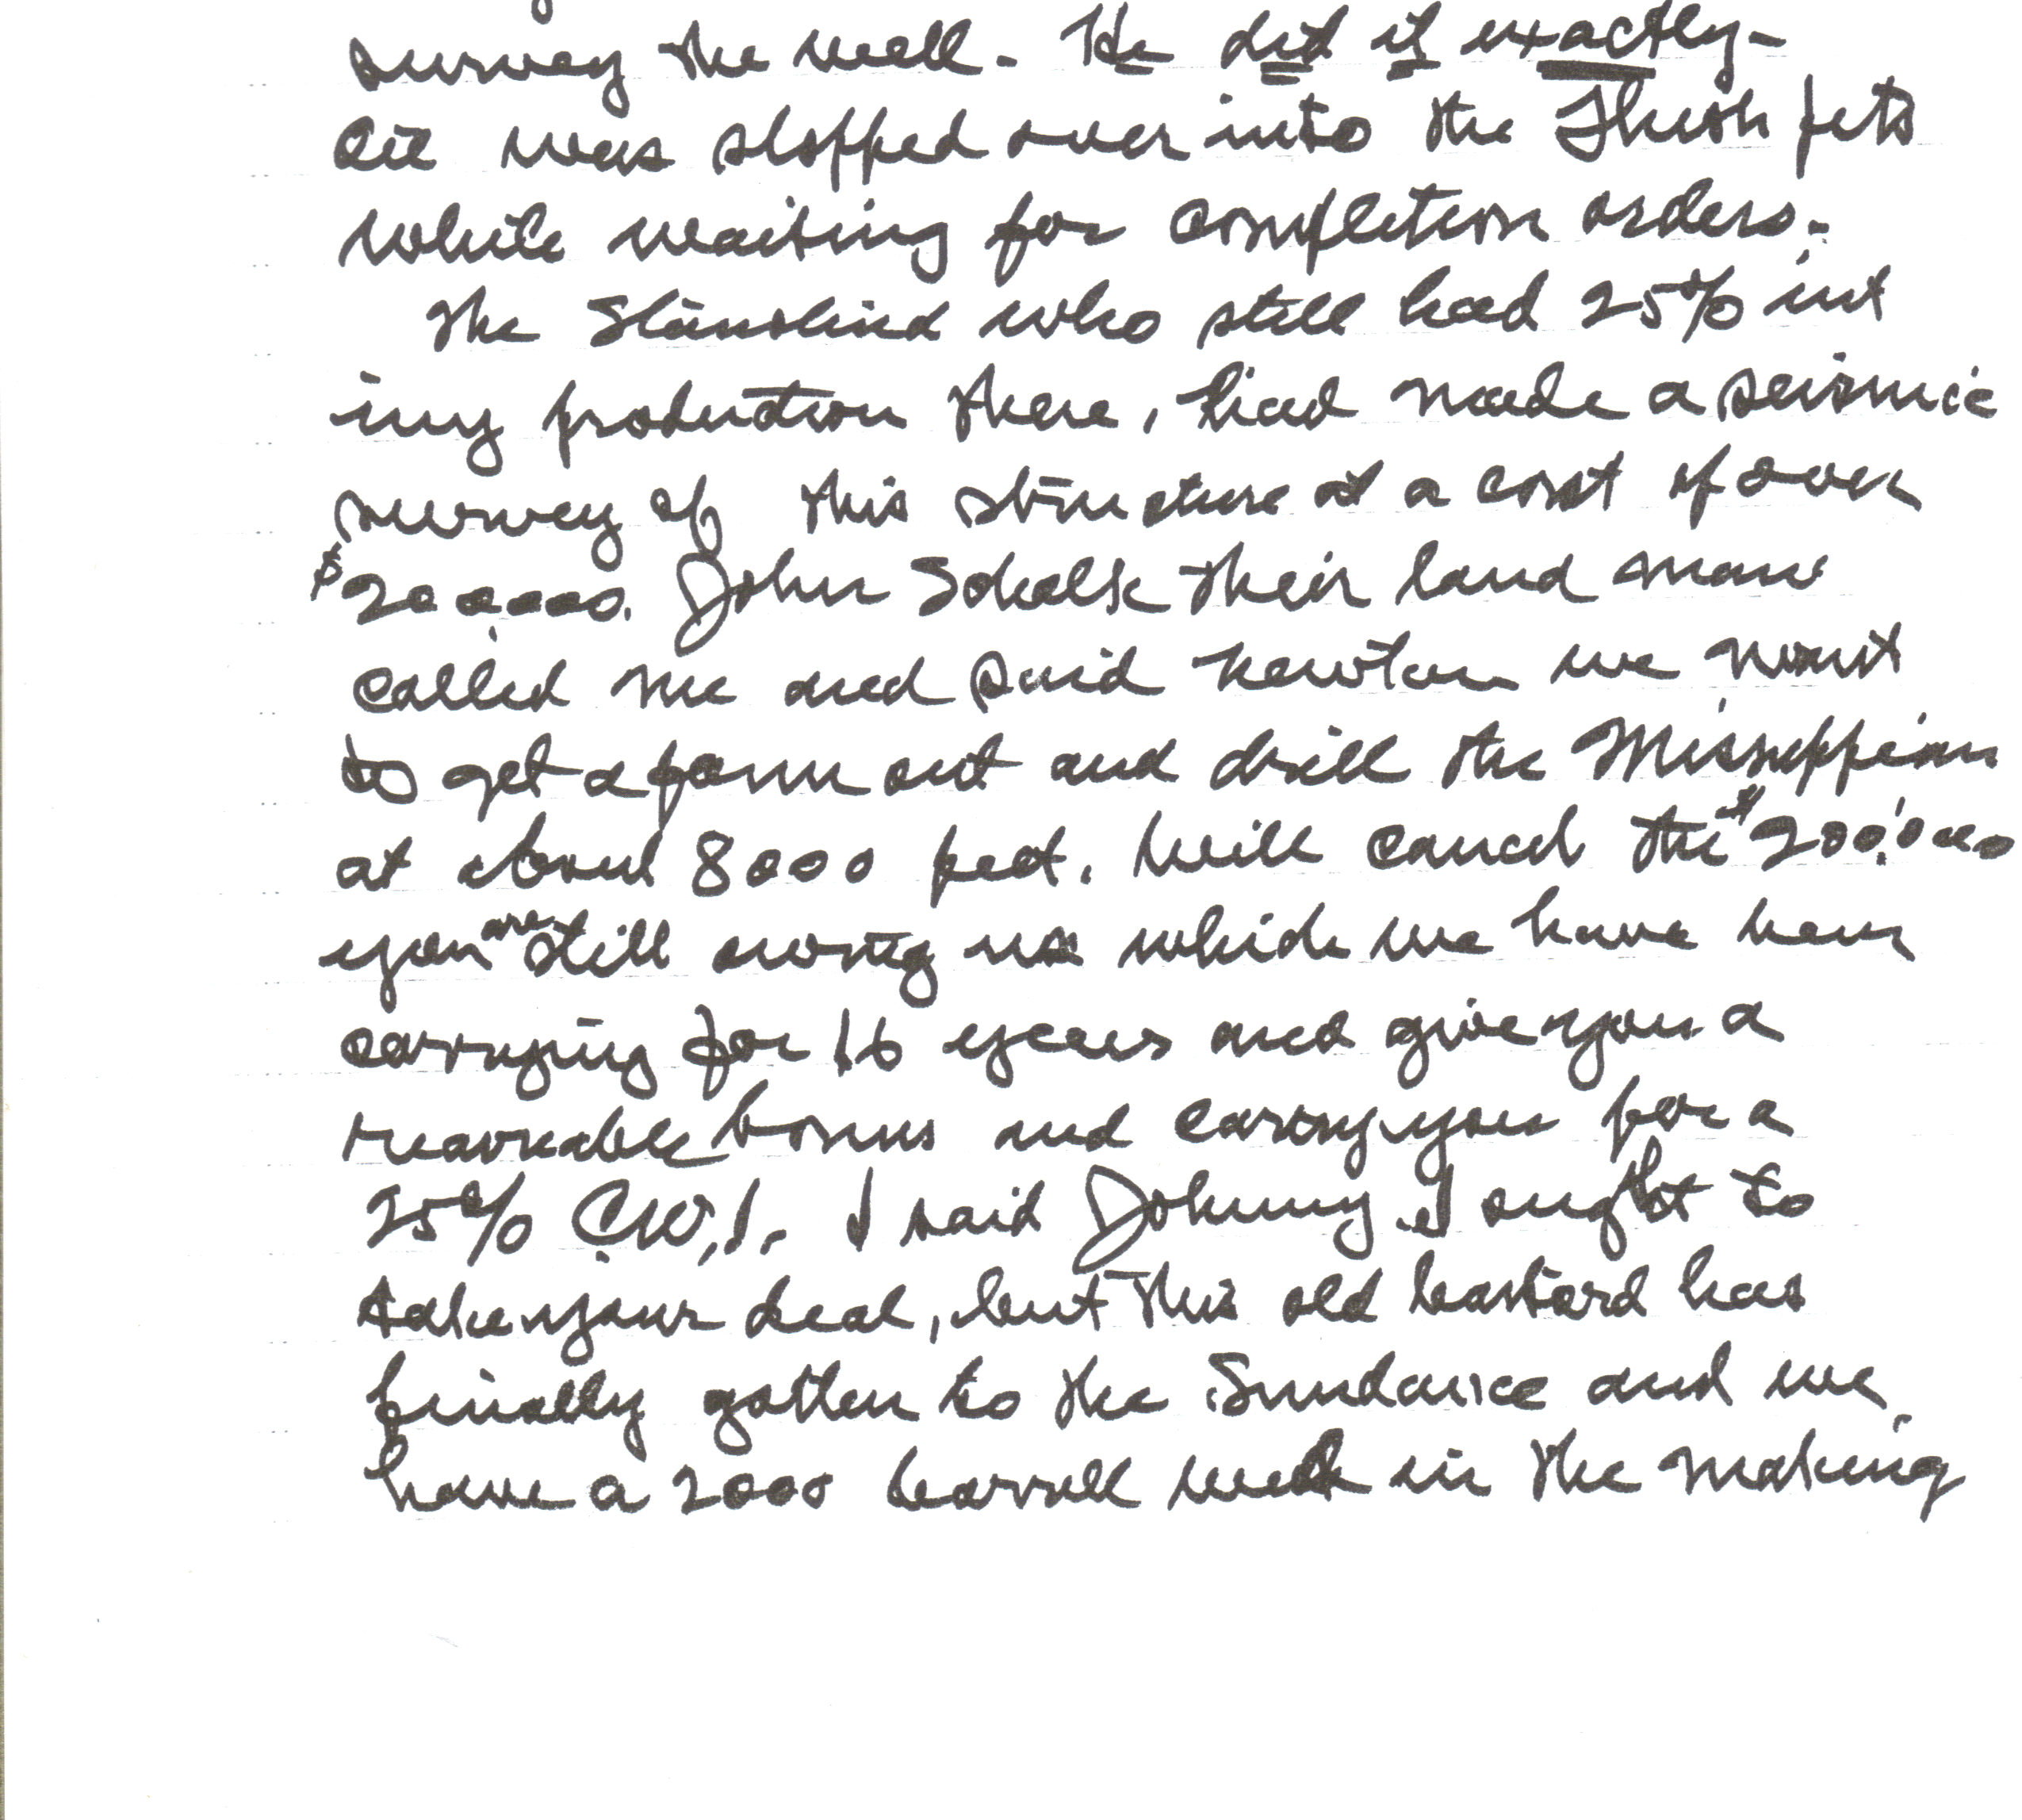 survey the well - He did it exactly -
Oil was slopped over into the Slush pits
while waiting for completion orders.
The Stanolind who still had 25% int
in production there, had made a seismic
survey of this structure at a cost of over
$200,000. John Schalk their land man
called me and said Newton we want
to get a farm out and drill the Missippian
at about 8000 feet. Will cancel the $200,000
you are still owing us which we have been
carrying for 16 years and give you a
reasonable bonus and carry you for a
25% C.W.I. I said Johnny I ought to
take your deal, but this old bastard has
finally gotten to the Sundance and we
have a 2000 barrell well in the making